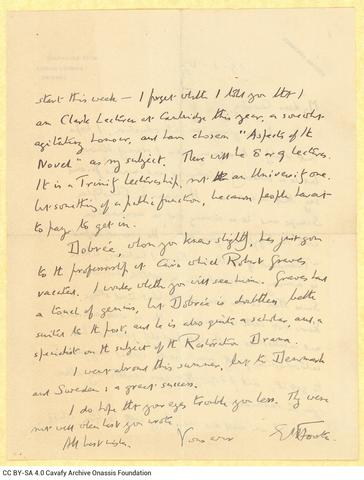 start this week — I forget whether I told you that I
am Clark Lecturer at Cambridge this year, a somewhat
agitating honour, and have chosen "Aspects of the
Novel" as my subject. There will be 8 or 9 lectures.
It is a Trinity Lectureship, not an University one.
but something of a public function, because people haven't
to pay to get in.
Dobrée, whom you knew slightly, has just gone
to the professorship at Cairo which Robert Graves
vacated. I wonder whether you will see him. Graves had
a touch of genius, but Dobrée is doubtless better
suited to the post, and he is also quite a scholar, and a
specialist on the subject of the Restoration Drama.
I went abroad this summer, but to Denmark
and Sweden: a great success.
I do hope that your eyes trouble you less. They were
not well when last you wrote
All best wishes. Yours ever EMForster
CC BY-SA 4.0 Cavafy Archive Onassis Foundation